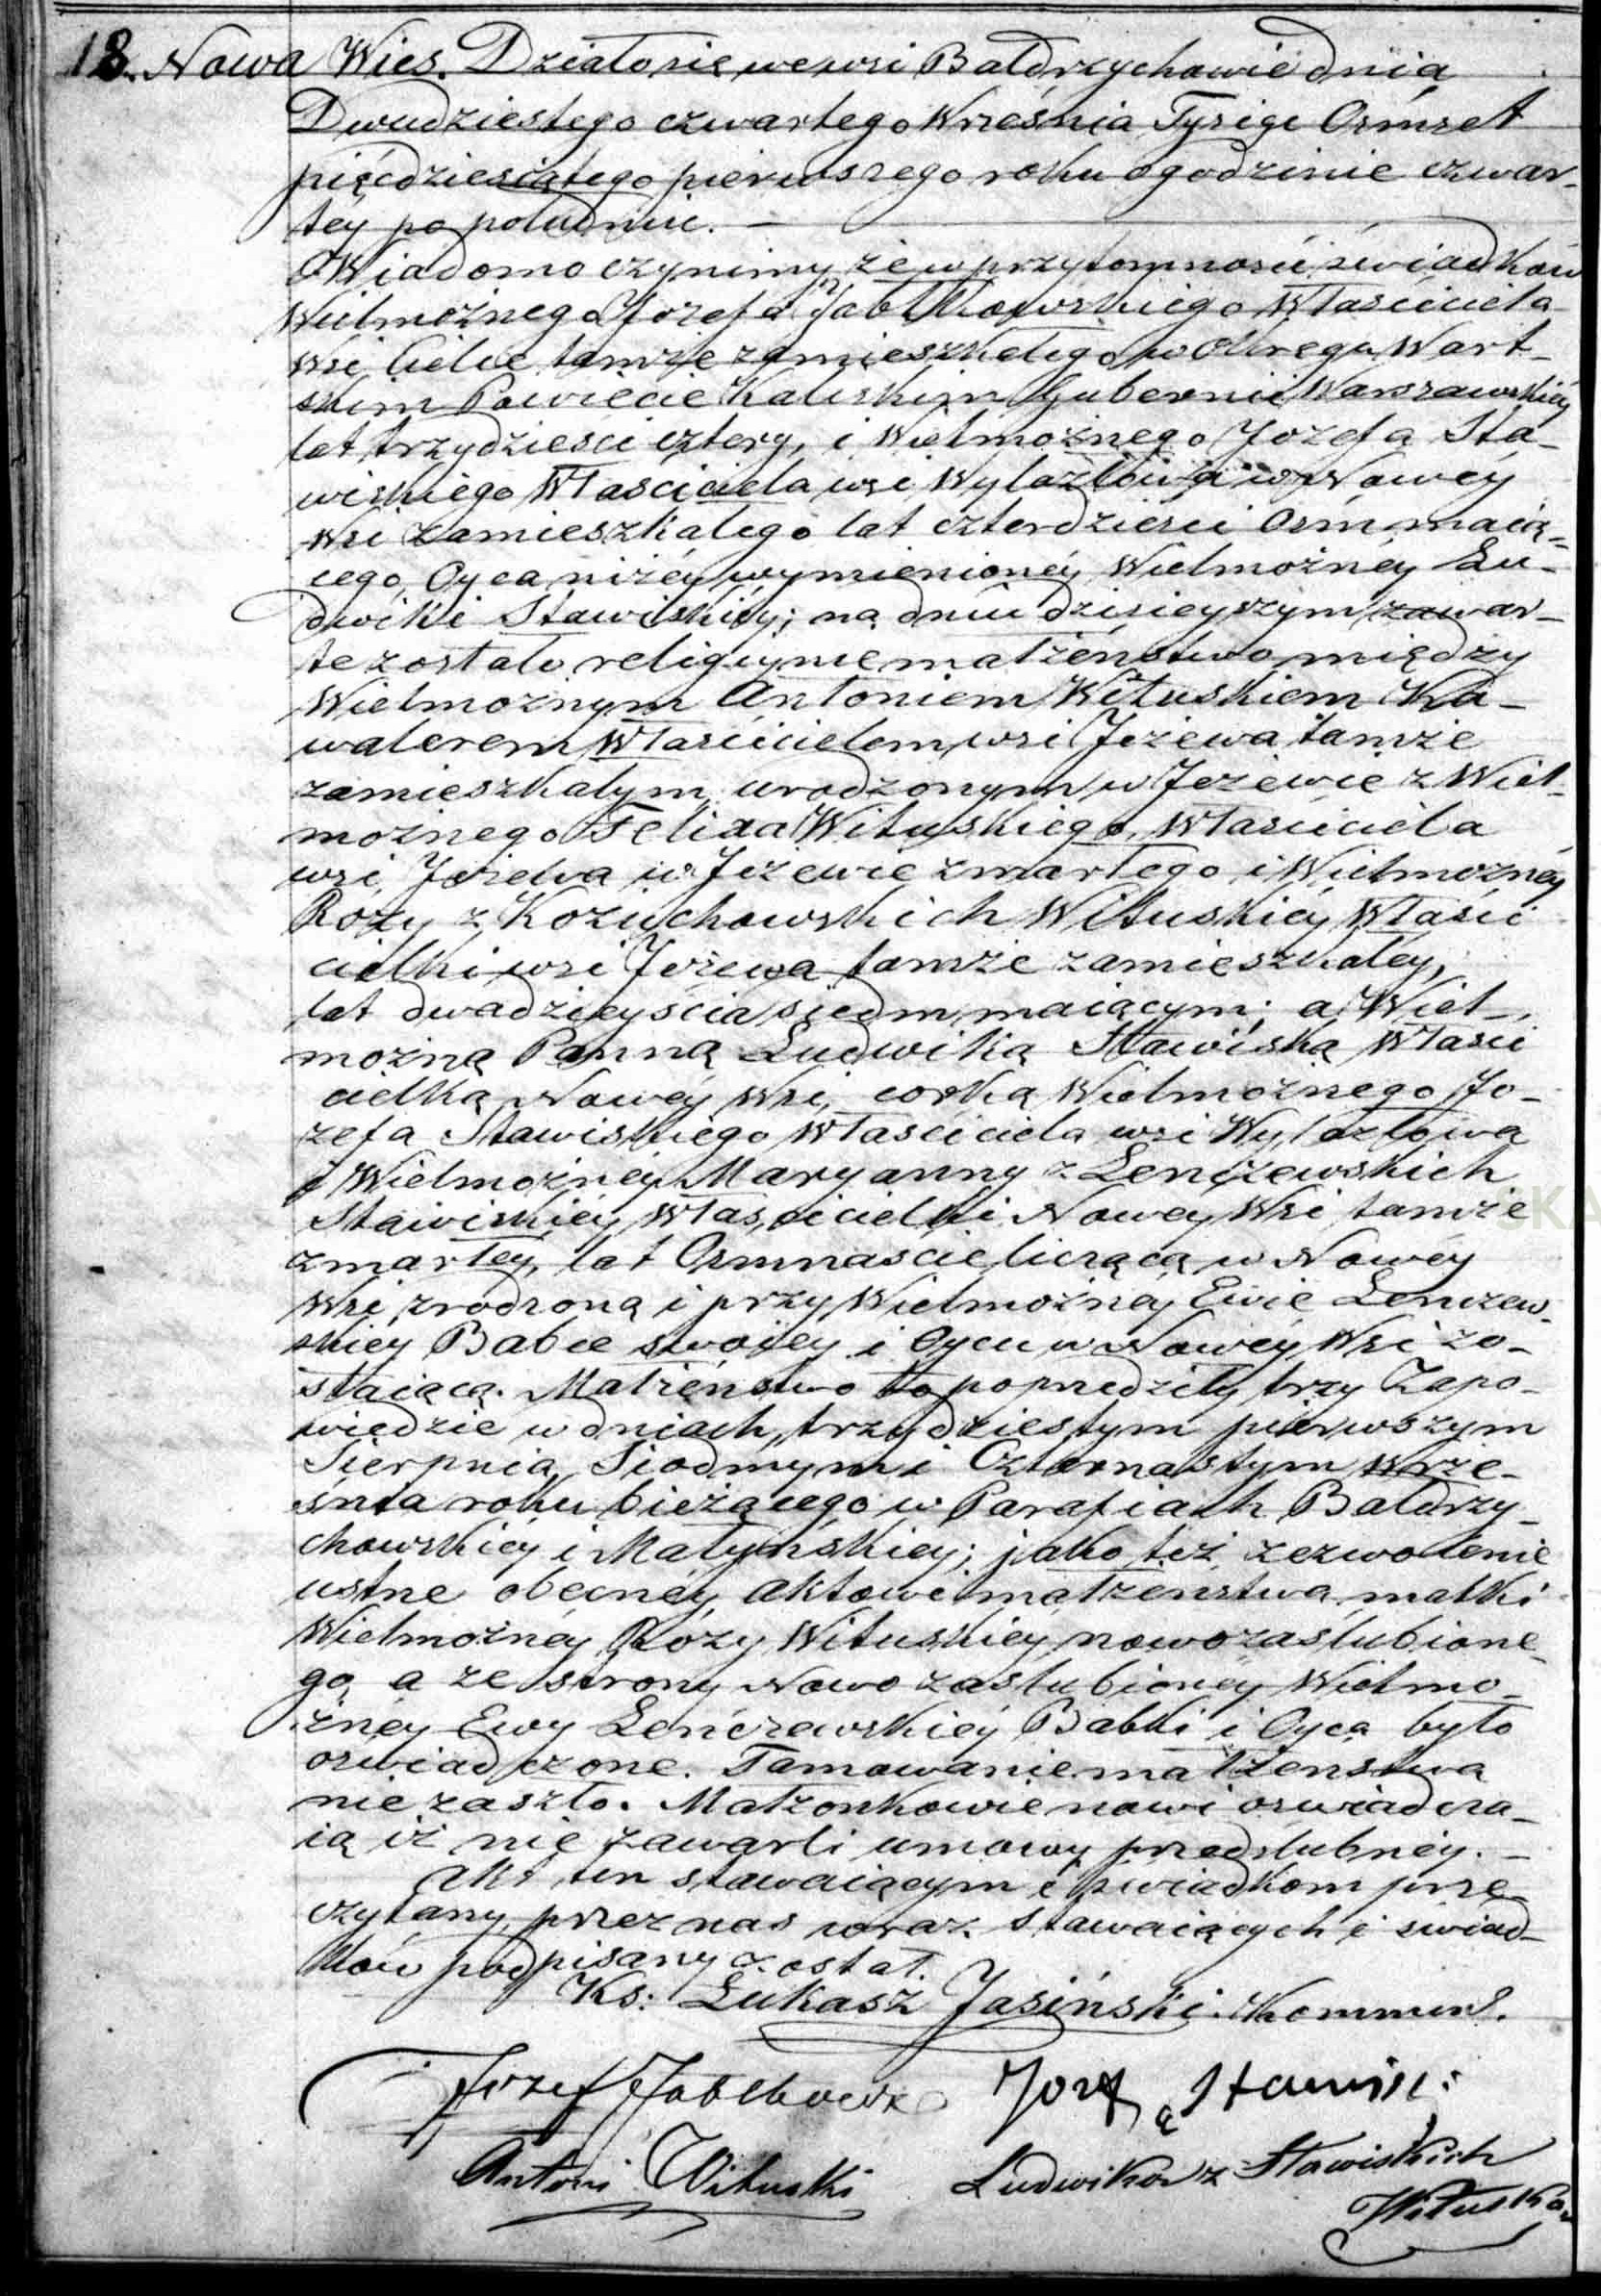 18. Nowa Wies. Działo się we wsi Bałdrzychowie dnia
Dwudziestego czwartego Września Tysiąc Ośmset
pięćdziesiątego pierwszego roku o godzinie czwar-
tey po południu. —
Wiadomo czynimy, że w przytomności świadków
Wielmożnego Józefa Jabłkowskiego Właściciela
wsi Cielce tamże zamieszkałego w Okręgu Wart-
skim Powiecie Kaliskim Gubernii Warszawskiéy
lat trzydzieści cztery, i Wielmożnego Józefa Sta-
wiskiego Właściciela wsi Wylazłowa w Nowéy
wsi zamieszkałego lat czterdzieści Ośm maią-
cego, Oyca niżéy wymienionéy Wielmożnéy Lu-
dwiki Stawiskiéy; na dniu dzisieyszym zawar-
te zostało religiyne małżeństwo między
Wielmożnym Antoniem Wituskiem Ka-
walerem Właścicielem wsi Jeżewa tamże
zamieszkałym urodzonym w Jeżewie z Wiel-
możnego Felixa Wituskiego, Właściciela
wsi Jeżewa w Jeżewie zmarłego i Wielmożnéy
Rozy z Kożuchowskich Wituskiéy Właści
cielki wsi Jeżewa tamże zamieszkałéy,
lat dwadzieyścia siedm maiącym; a Wiel-
możną Panną Ludwiką Stawiską Właści
cielką Nowéy Wsi, corką Wielmożnego Jo-
zefa Stawiskiego Właściciela wsi Wylazłowa
i Wielmożnéy Maryanny z Lenczewskich
Stawiskiéy Właścicielki Nowey Wsi tamże
zmarłey, lat Ośmnaście liczącą w Nowéy
Wsi zrodzoną i przy Wielmożnéy Ewie Lenczew-
skiey Babce swoiey i Oycu w Nowéy Wsi zo-
staiącą. Małżeństwo to poprzedziły trzy Zapo-
wiedzie w dniach, trzydziestym pierwszym
Sierpnia, Siodmym i Czternastym Wrze-
śnia roku bieżącego w Parafiach Bałdrzy-
chowskiéy i Małyńskiey; jako też zezwolenie
ustne obecnéy aktowi małżeństwa matki
Wielmożnéy Rózy Wituskiey nowozaślubione-
go, a ze strony Nowo zaślubionéy Wielmo-
żnéy Ewy Lenczewskiéy Babki i Oyca było
oświadczone. Tamowanie małżeństwa
nie zaszło. Małżonkowie nowi oświadcza-
ią iż nie zawarli umowy przedślubnéy. —
Akt ten stawaiącym i świadkom prze-
czytany, przez nas wraz stawaiących i świad-
ków podpisany został.
Ks: Łukasz Jasiński. Kommend.
Józef Jabłkowski Józef Stawiski
Antoni Wituski Ludwika z Stawiskich
Wituska